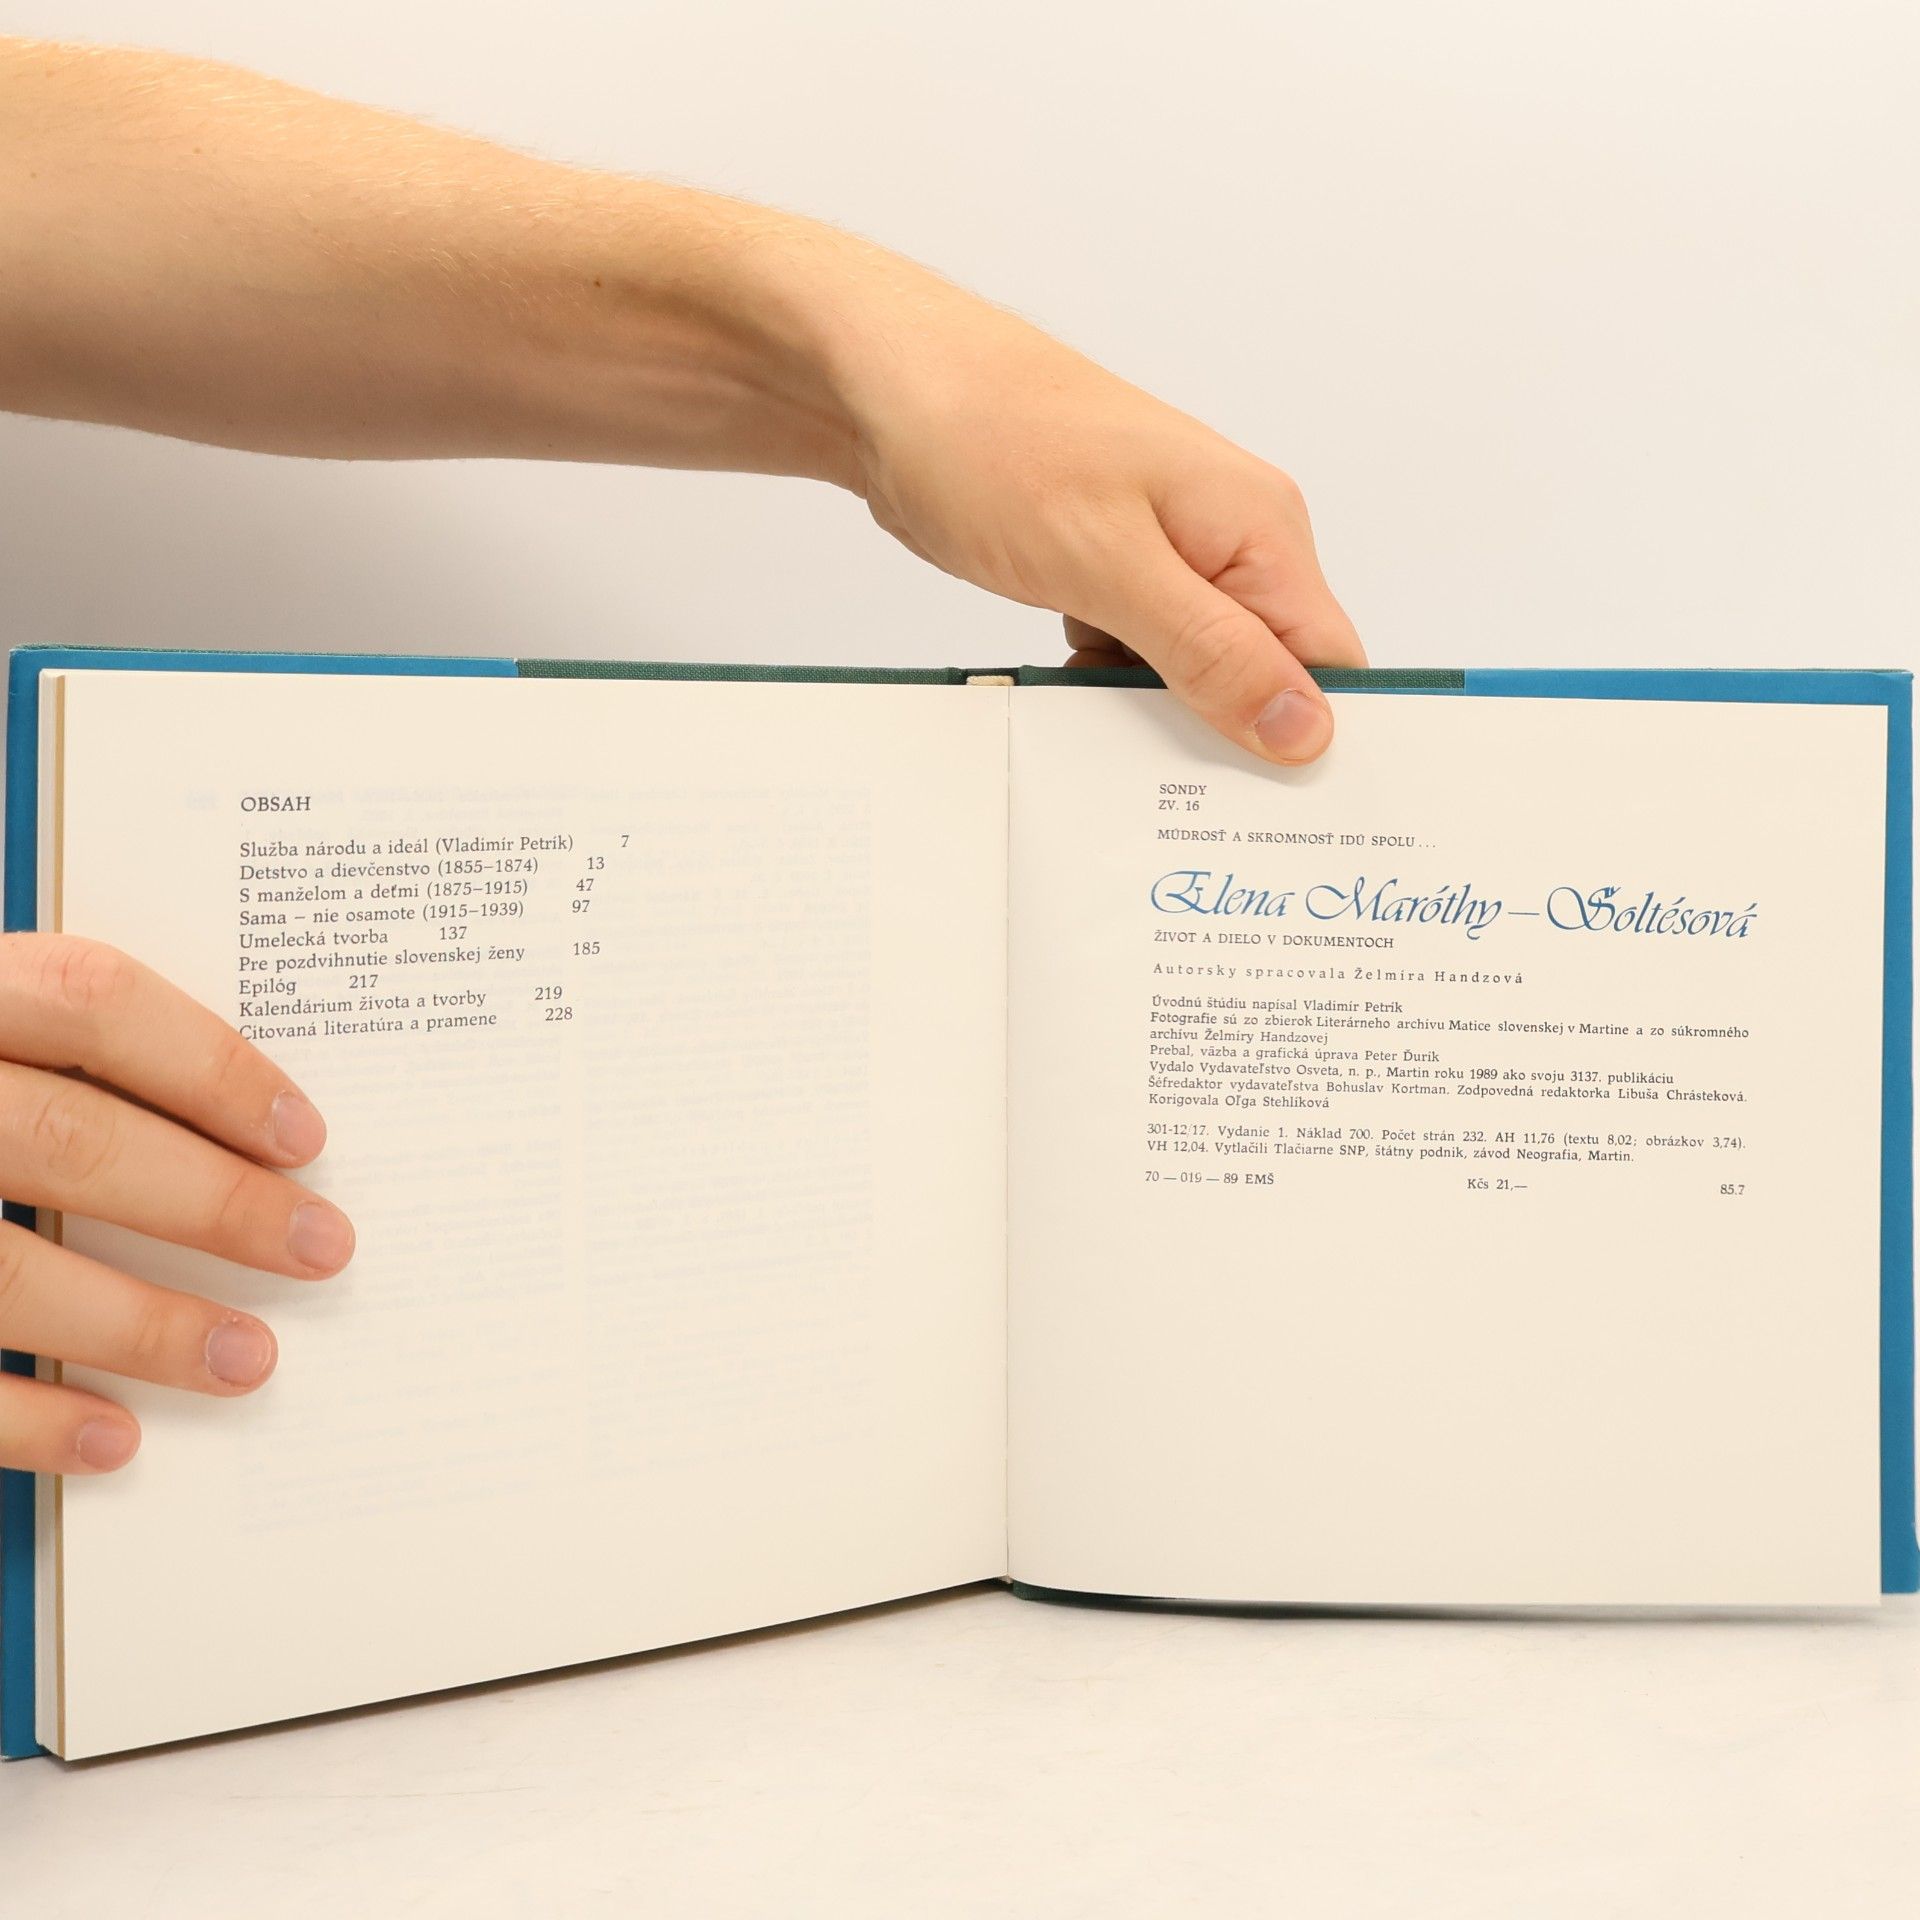 OBSAH
Služba národu a ideál (Vladimír Petrík) 7
Detstvo a dievčenstvo (1855–1874) 13
S manželom a deťmi (1875–1915) 47
Sama – nie osamote (1915–1939) 97
Umelecká tvorba 137
Pre pozdvihnutie slovenskej ženy 185
Epilóg 217
Kalendárium života a tvorby 219
Citovaná literatúra a pramene 228
SONDY
ZV. 16
MÚDROSŤ A SKROMNOSŤ IDÚ SPOLU...
Elena Maróthy–Šoltésová
ŽIVOT A DIELO V DOKUMENTOCH
Autorsky spracovala Želmíra Handzová
Úvodnú štúdiu napísal Vladimír Petrík
Fotografie sú zo zbierok Literárneho archívu Matice slovenskej v Martine a zo súkromného
archívu Želmíry Handzovej
Prebal, väzba a grafická úprava Peter Ďurík
Vydalo Vydavateľstvo Osveta, n. p., Martin roku 1989 ako svoju 3137. publikáciu
Šéfredaktor vydavateľstva Bohuslav Kortman. Zodpovedná redaktorka Libuša Chrásteková.
Korigovala Oľga Stehlíková
301-12/17. Vydanie 1. Náklad 700. Počet strán 232. AH 11,76 (textu 8,02; obrázkov 3,74).
VH 12,04. Vytlačili Tlačiarne SNP, štátny podnik, závod Neografia, Martin.
70 — 019 — 89 EMŠ Kčs 21,— 85.7